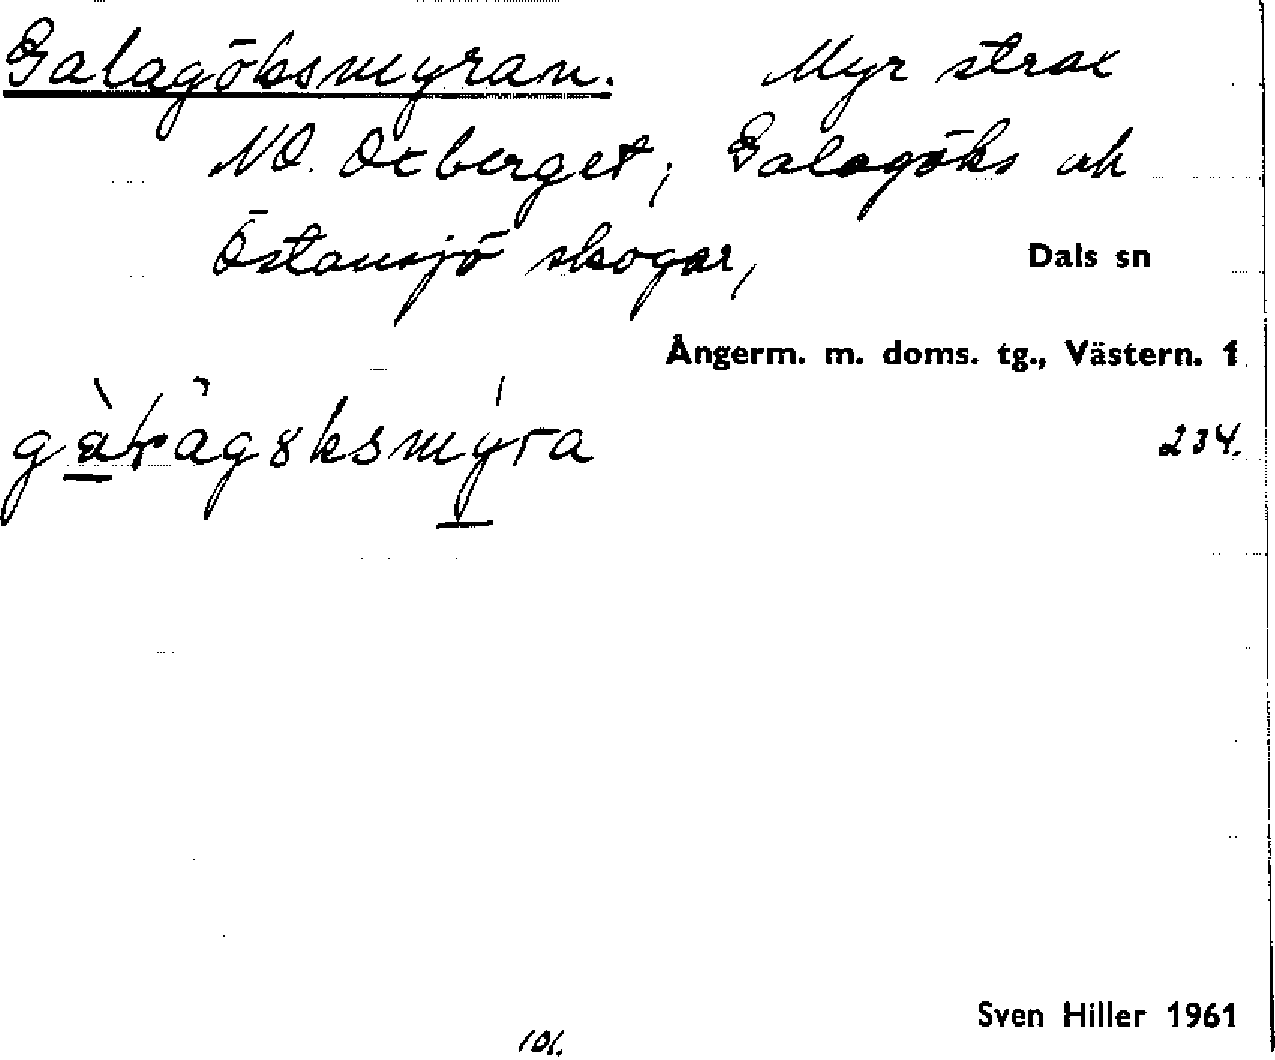 Galagöksmyran. Myr strax
NO. Oxberget, Galagöks och
Östansjö skogar,
Dals sn
Ångerm. m. doms. tg., Västern. 1
234.
Sven Hiller 1961
101.